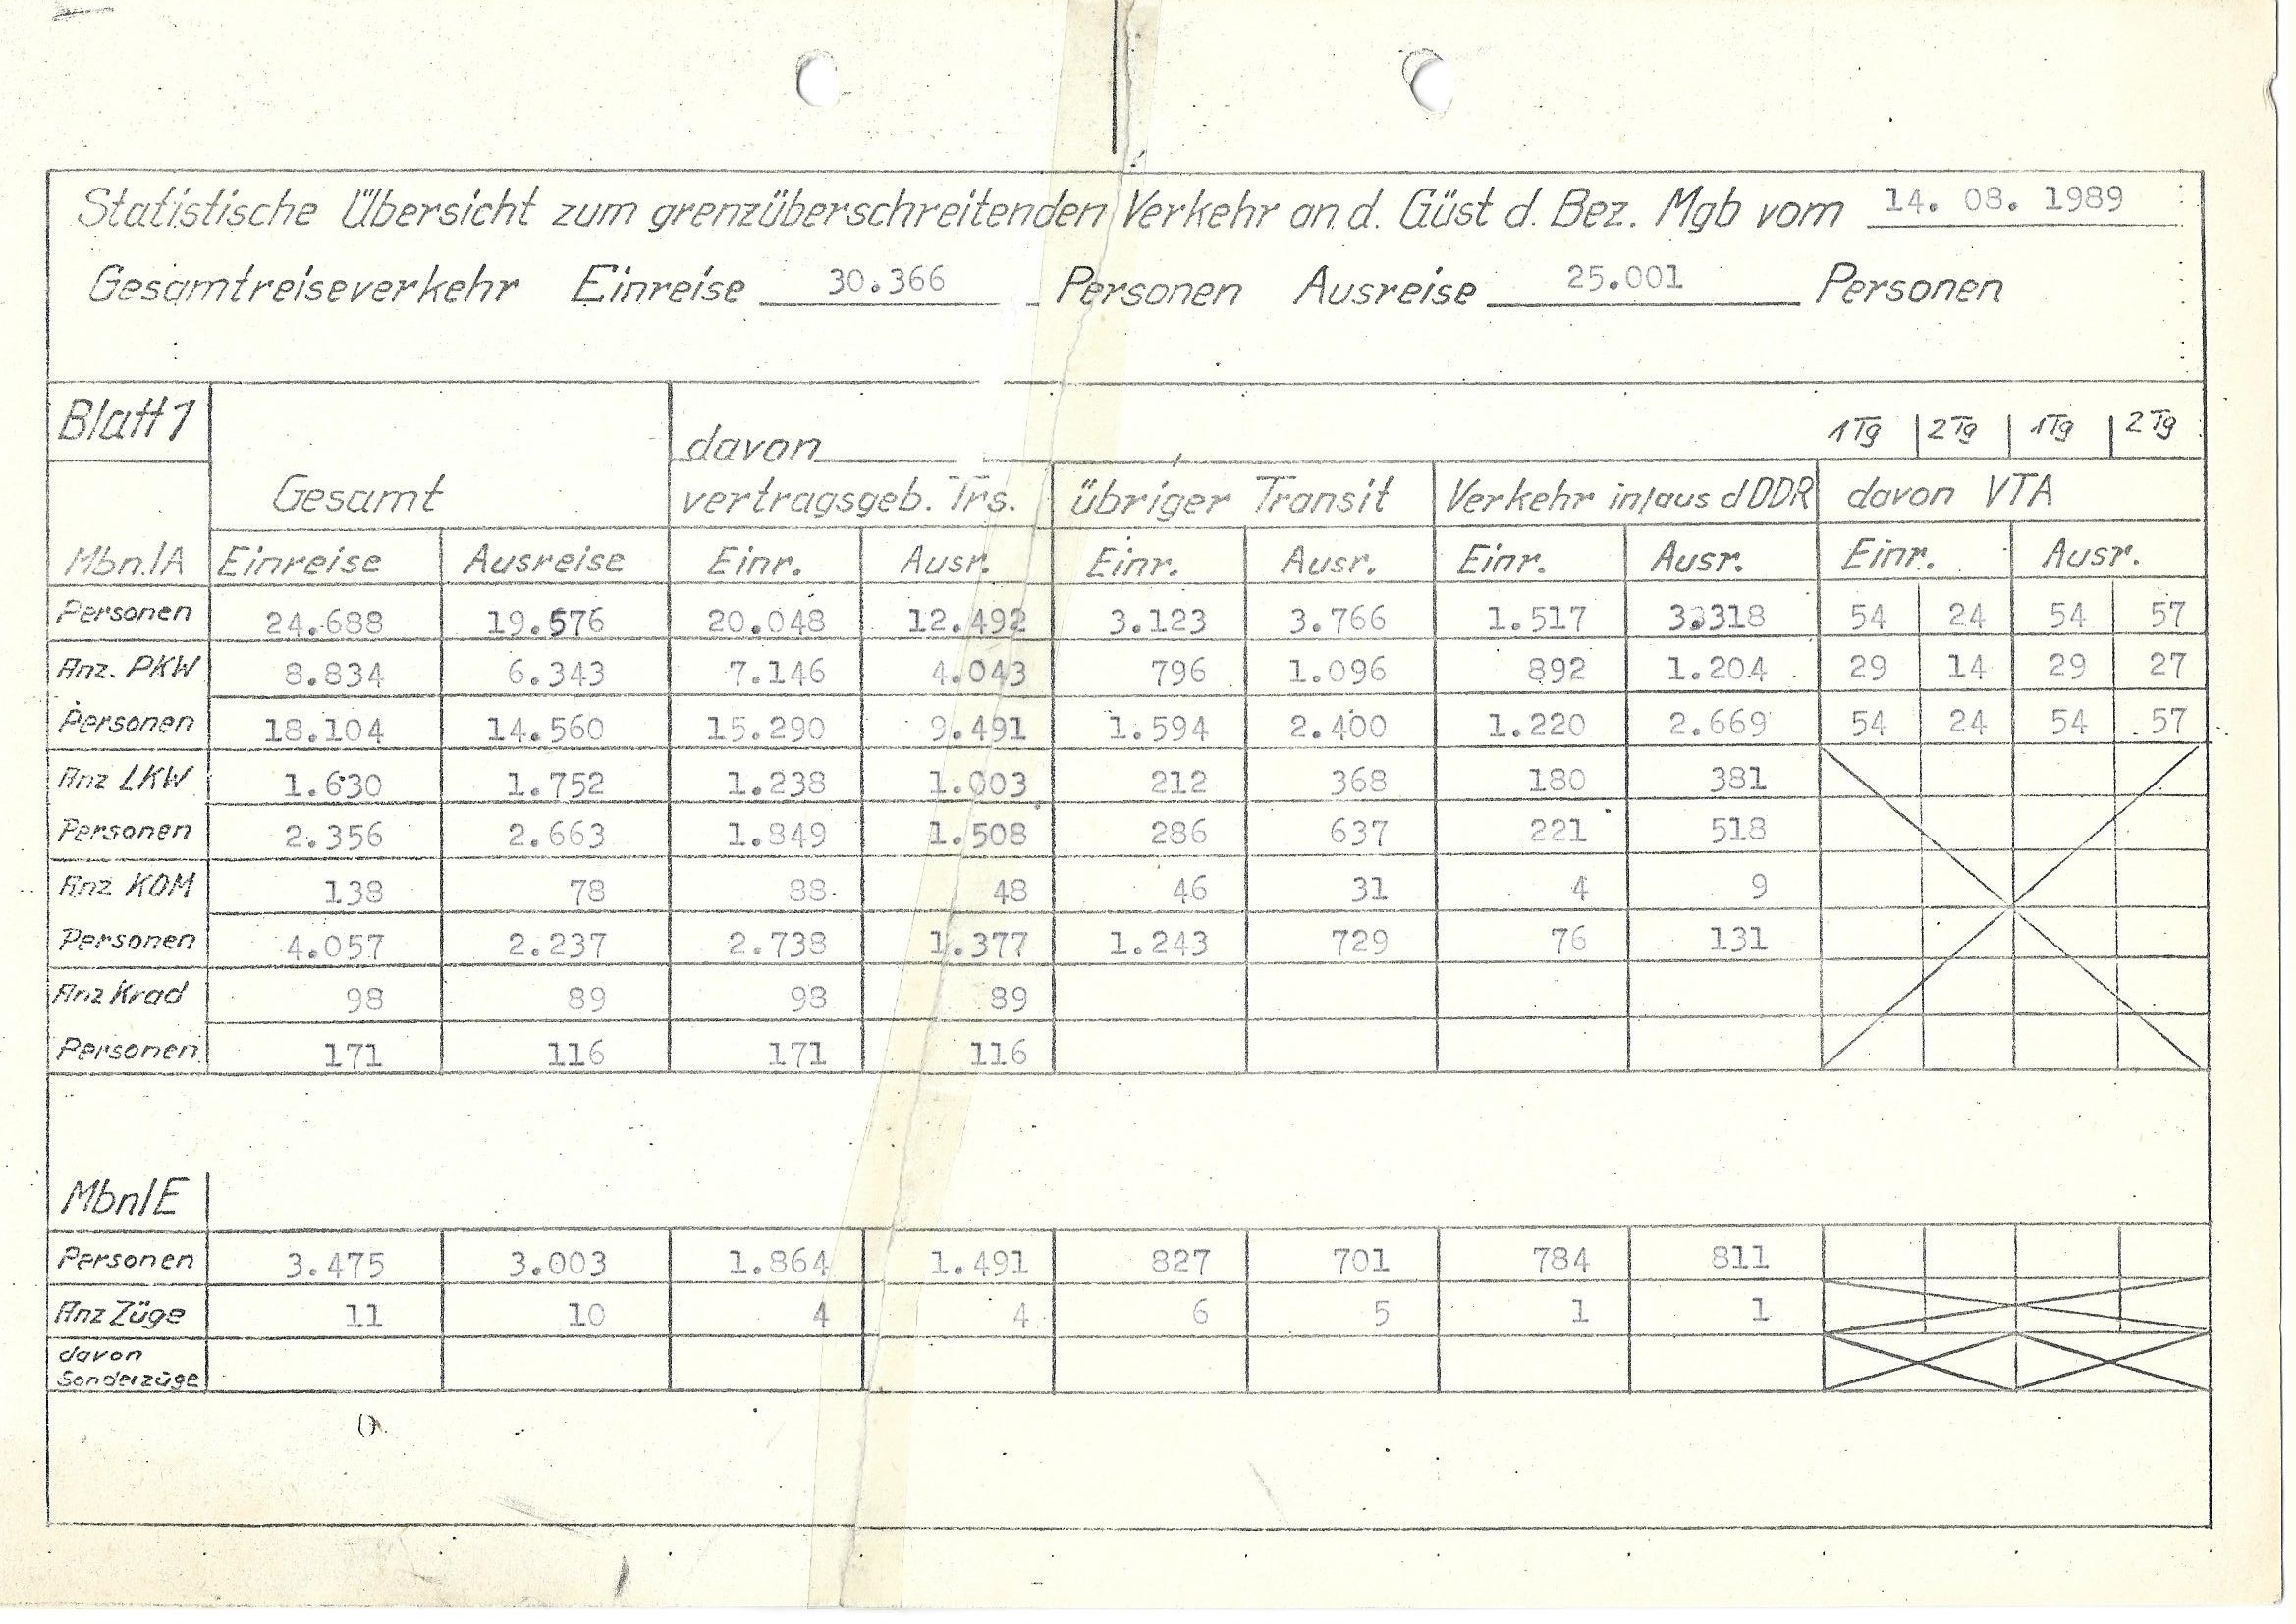 Statistische Übersicht zum grenzüberschreitenden Verkehr an d. Güst d. Bez. Mgb vom 14. 08. 1989
Gesamtreiseverkehr Einreise 30.366 Personen Ausreise 25.001 Personen
Blatt 1 davon 1Tg 2Tg 1Tg 2Tg
Gesamt vertragsgeb. Trs. übriger Transit Verkehr in/aus d DDR davon VTA
Mbn./A Einreise Ausreise Einr. Ausr. Einr. Ausr. Einr. Ausr. Einr. Ausr.
Personen 24.688 19.576 20.048 12.492 3.123 3.766 1.517 3.318 54 24 54 57
Anz. PKW 8.834 6.343 7.146 4.043 796 1.096 892 1.204 29 14 29 27
Personen 18.104 14.560 15.290 9.491 1.594 2.400 1.220 2.669 54 24 54 57
Anz LKW 1.630 1.752 1.238 1.003 212 368 180 381
Personen 2.356 2.663 1.849 1.508 286 637 221 518
Anz KOM 138 78 88 48 46 31 4 9
Personen 4.057 2.237 2.738 1.377 1.243 729 76 131
Anz Krad 98 89 98 89
Personen 171 116 171 116
Mbn/E
Personen 3.475 3.003 1.864 1.491 827 701 784 811
Anz Züge 11 10 4 4 6 5 1 1
davon
Sonderzüge